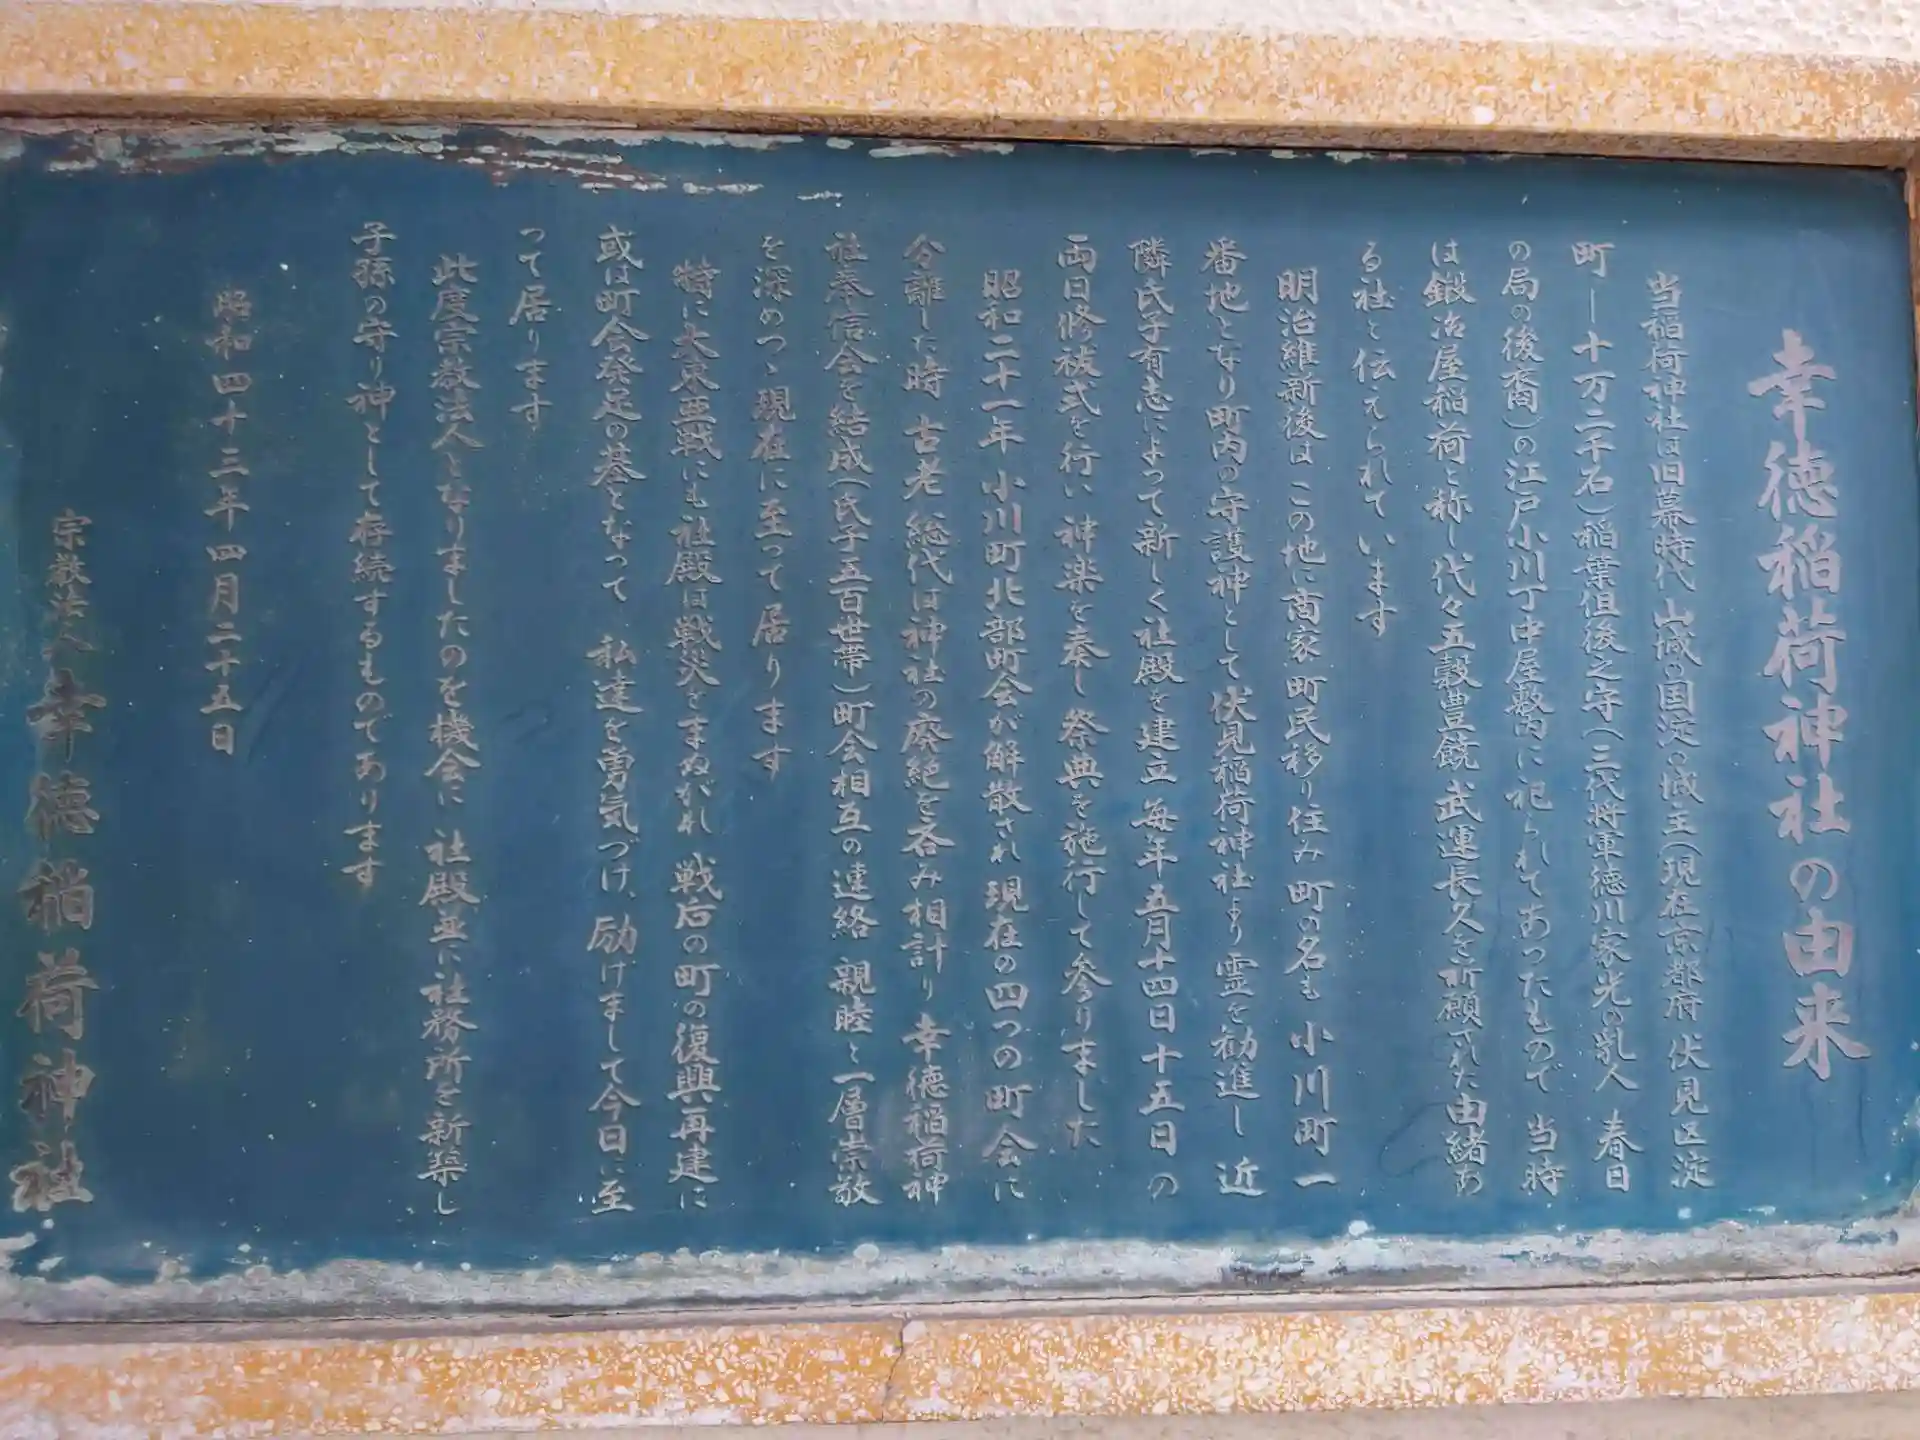 幸徳稲荷神社の由来
当稲荷神社は旧幕時代 山城の国淀の城主(現在京都府 伏見区淀
町―十万二千石)稲葉但後之守(三代将軍徳川家光の乳人 春日
の局の後裔)の江戸小川丁中屋敷内に祀られてあつたもので 当時
は鍛冶屋稲荷と称し代々五穀豊饒 武運長久を祈願された由緒あ
る社と伝えられています
明治維新後は この地に商家町民移り住み 町の名も 小川町一
番地となり町内の守護神として 伏見稲荷神社より霊を勧進し 近
隣氏子有志によつて新しく社殿を建立 毎年五月十四日十五日の
両日修祓式を行い 神楽を奏し 祭典を施行して参りました
昭和二十一年 小川町北部町会が解散され 現在の四つの町会に
分離した時 古老 総代は神社の廃絶を呑み相計り 幸徳稲荷神
社奉信会を結成(氏子五百世帯)町会相互の連絡 親睦と一層崇敬
を深めつゝ現在に至つて居ります
特に大東亜戦にも社殿は戦災をまぬがれ 戦后の町の復興再建に
或は町会発足の基となつて 私達を勇気づけ、励けまして今日に至
つて居ります
此度宗教法人となりましたのを機会に 社殿並に社務所を新築し
子孫の守り神として存続するものであります
昭和四十三年四月二十五日
宗教法人 幸徳稲荷神社